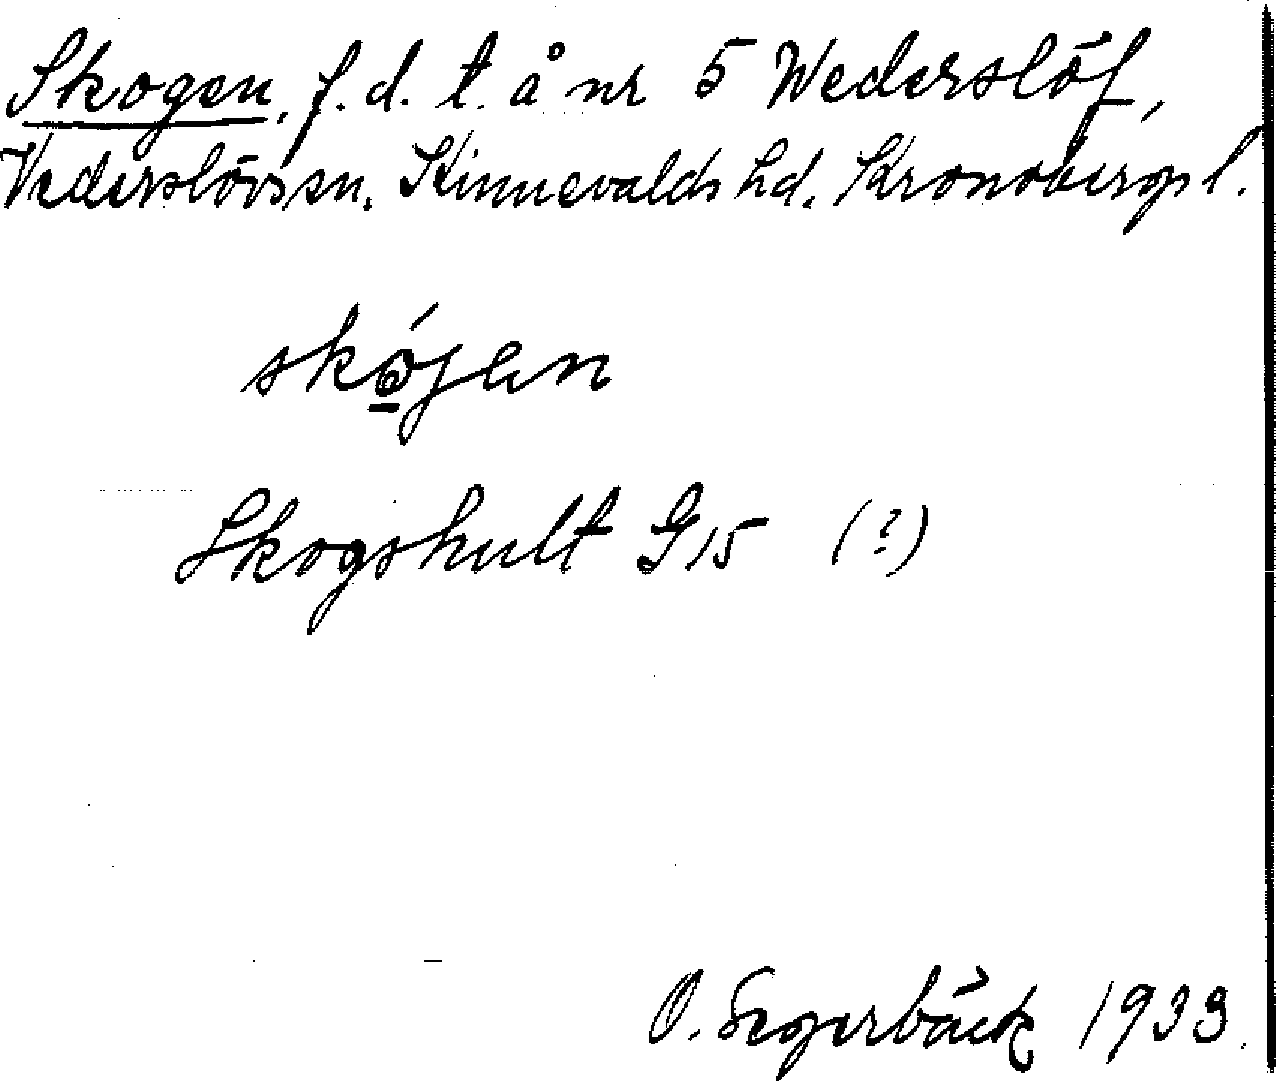 Skogen, f.d. t. å nr 5 Wederslöf,
Vederslövs sn. Kinnevalds hd. Kronobergs l.
skójen
Skogshult G15 (?)
O. Segerbäck 1933.